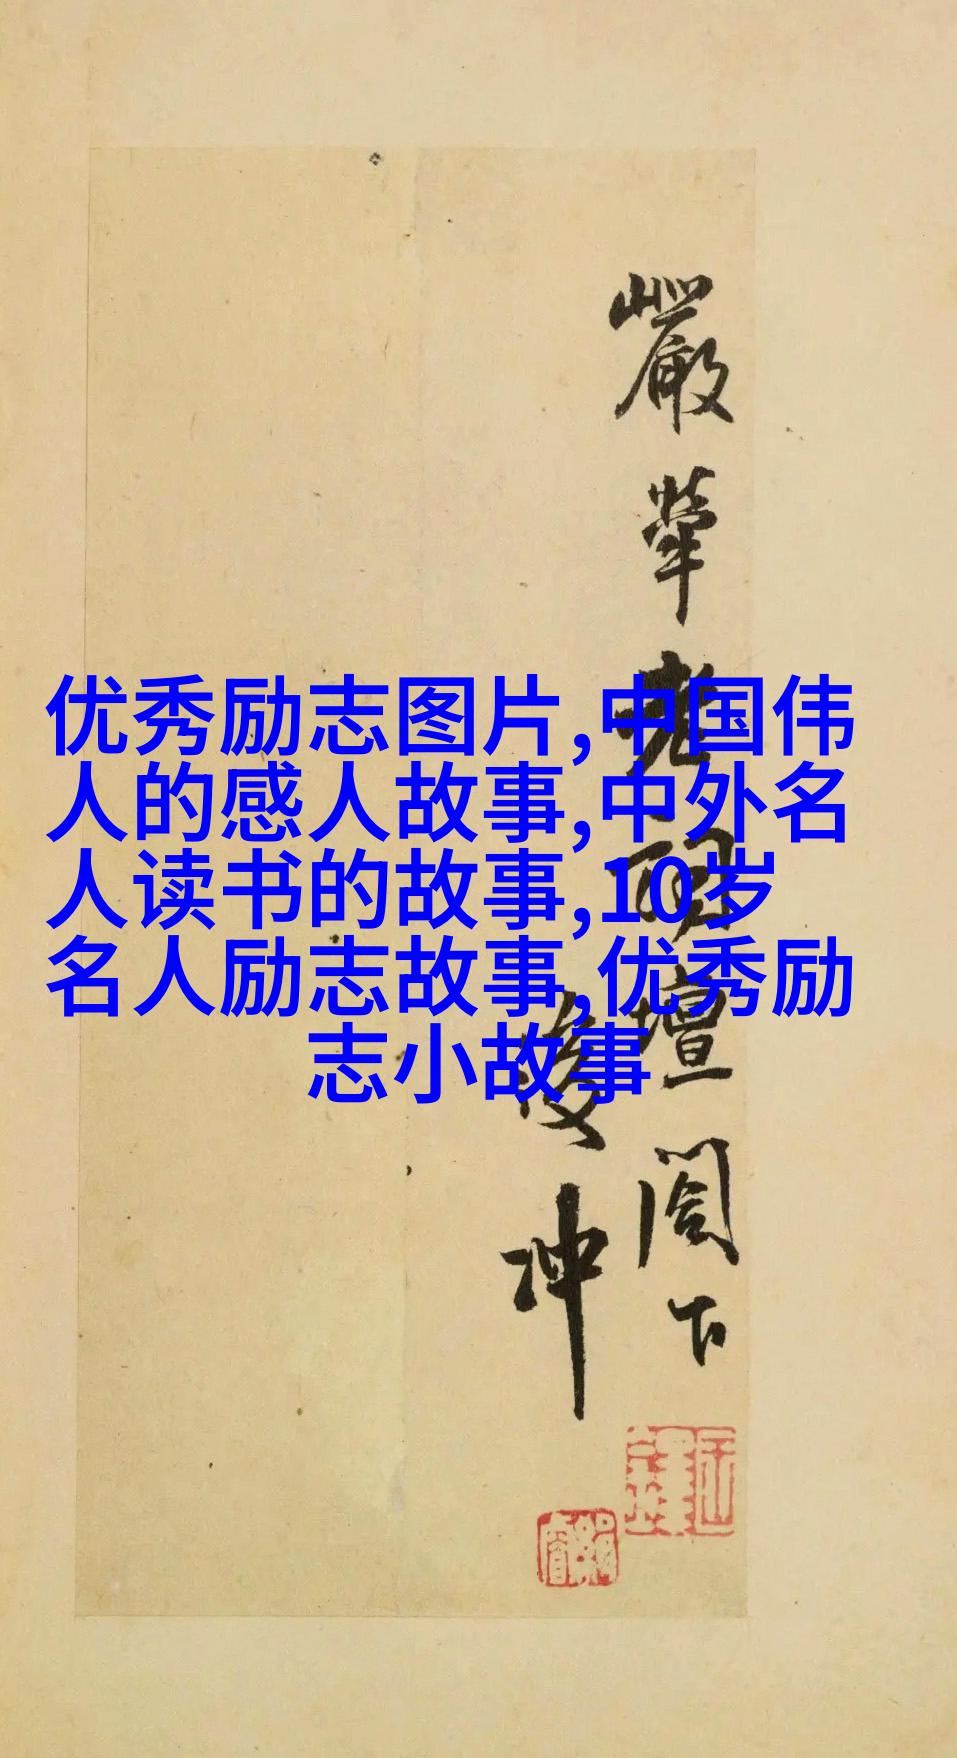 优秀励志图片,中国伟
人的感人故事,中外名
人读书的故事,10岁
名人励志故事,优秀励
志小故事
嚴犖老詞壇閣下
冲